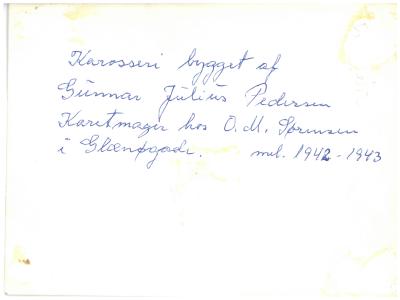 Karosseri bygget af
Gunnar Julius Pedersen
Karetmager hos O. M. Sørensen
i Glænøgade. mel. 1942-1943